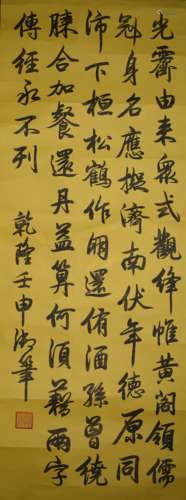 光霽由来衆式觀絳帷黃閣領儒
冠身名應擬濟南伏年德原同
沛下桓松鶴作朋還侑酒孫曾繞
膝合加餐還丹益算何須藉兩字
傳經永不列
乾隆壬申御筆